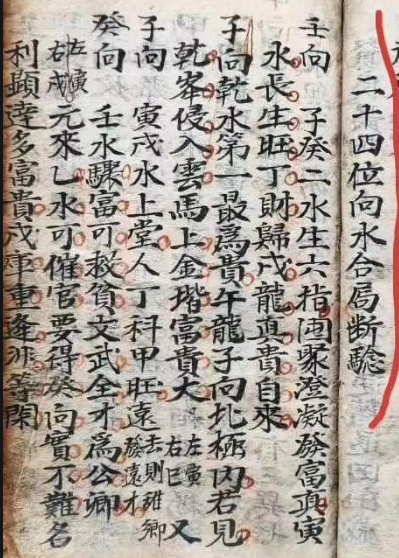 二十四位向水合局断騐
壬向 子癸二水生六指囬聚澄凝發富真寅
水長生旺丁財歸戌龍真貴自來
子向乾水第一最爲貴午龍子向北極内若見
乾峯侵入雲馬上金堦富貴大 左寅右巳 又
子向 寅戌水上堂人丁科甲旺遠 去則離鄉發遠才
癸向 壬水驟富可救貧文武全才爲公卿
左寅右戌 元來乙水可催官要得癸向實不難名
利顯達多富貴戌庫重逢非等閑